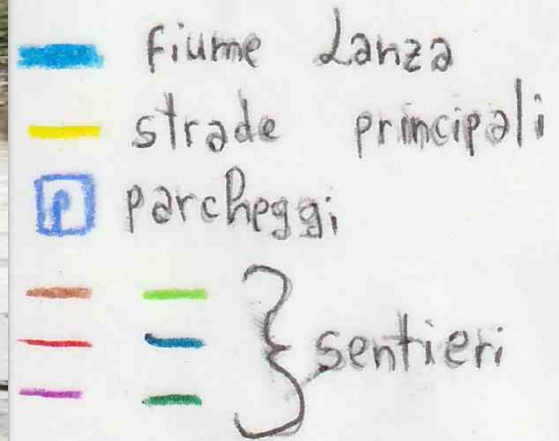 fiume Lanza
strade principali
P parcheggi
sentieri